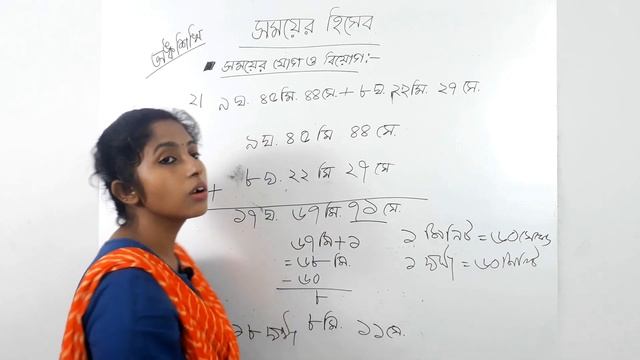 সময়ের হিসেব
অঙ্ক শিখি
সময়ের যোগ ও বিয়োগ:-
২। ৯ ঘ. ৪৫ মি. ৪৪ সে. + ৮ ঘ. ২২ মি. ২৭ সে.
৯ ঘ. ৪৫ মি ৪৪ সে.
+ ৮ ঘ. ২২ মি ২৭ সে
১৭ ঘ. ৬৭ মি. ৭১ সে.
৬৭ মি + ১
= ৬৮ মি.
- ৬০
৮
১ মিনিট = ৬০ সেকেন্ড
১ ঘন্টা = ৬০ মিনিট
১৮ ঘন্টা ৮ মি. ১১ সে.